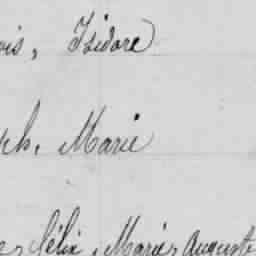 ois, Isidore
ph, Marie
e, félix, Marie, auguste